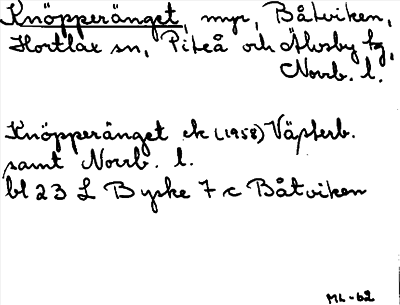 Knöpperänget, myr, Båtviken,
Hortlax sn, Piteå och Älvsby tg,
Norrb. l.
Knöpperänget ek (1958) Västerb.
samt Norrb. l.
bl 23 L Byske 7 c Båtviken
ML-62